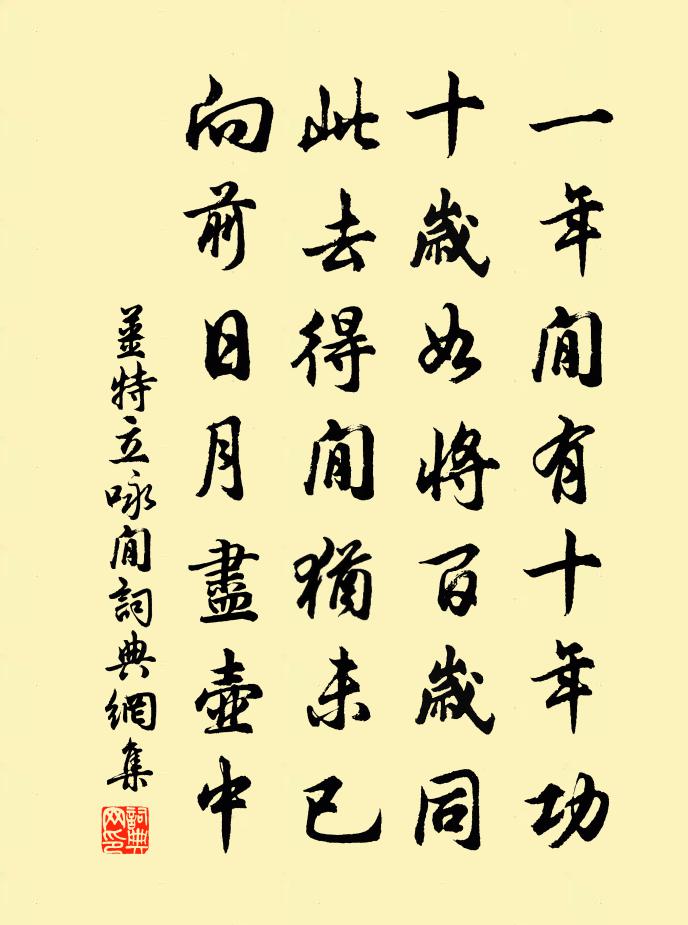 一年閒有十年功
十歲如將百歲同
此去得閒猶未已
向前日月盡壺中
姜特立咏閒詞典網集
詞典网印